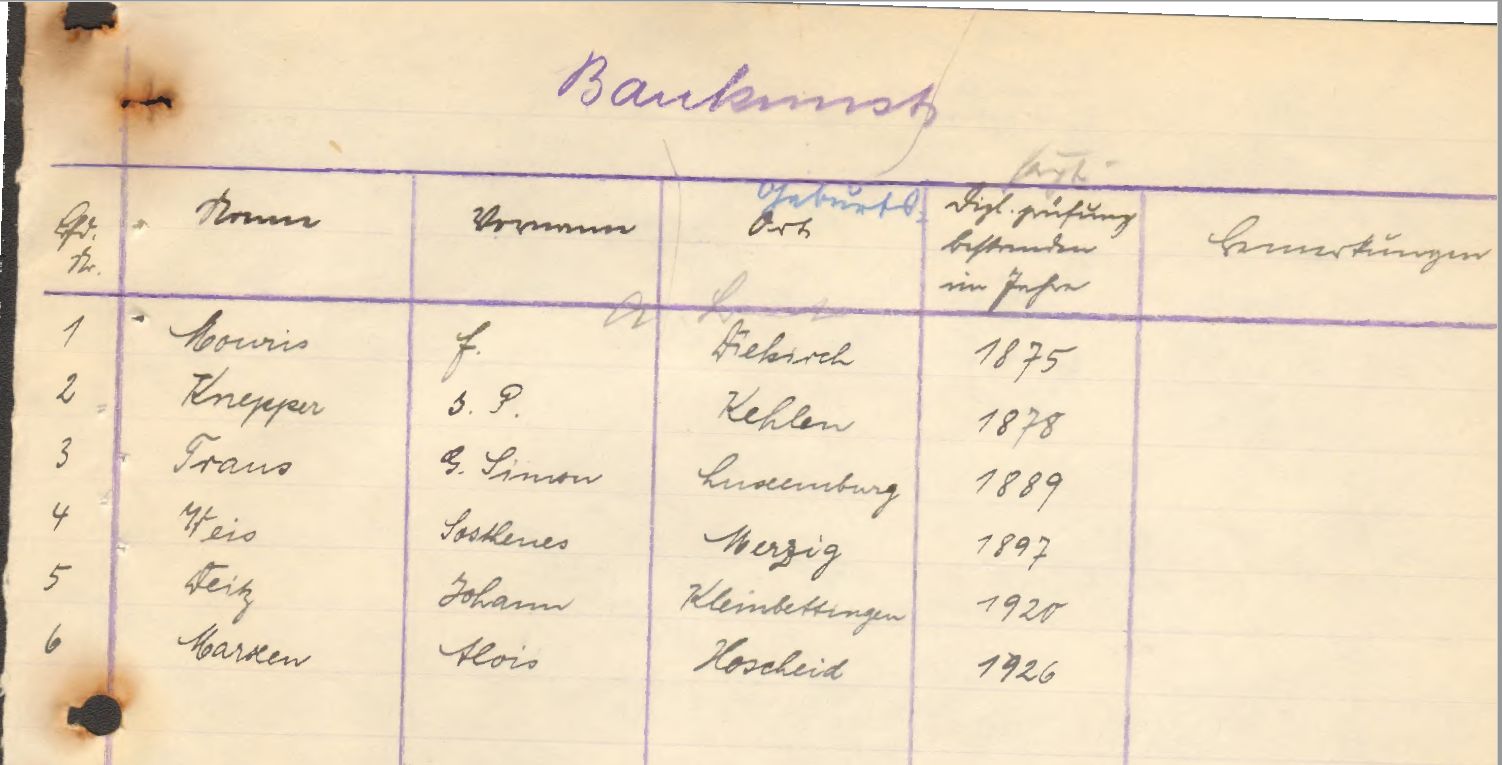 Baukunst
Lfd. Nr. Name Vorname Geburts- Ort Dipl. prüfung bestanden im Jahre Bemerkungen
1 Mouris f. Diekirch 1875
2 Knepper J. P. Kehlen 1878
3 Traus G. Simon Luxemburg 1889
4 Weis Sosthenes Merzig 1897
5 Deitz Johann Kleinbettingen 1920
6 Marxen Alois Hoscheid 1926